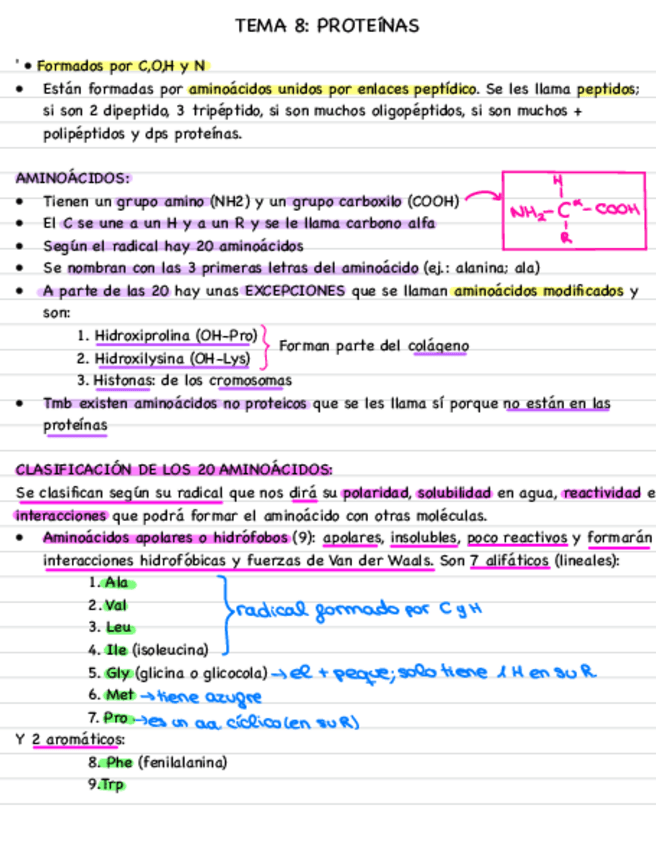 TEMA 8: PROTEÍNAS
' • Formados por C,O,H y N
• Están formadas por aminoácidos unidos por enlaces peptídico. Se les llama peptidos;
si son 2 dipeptido, 3 tripéptido, si son muchos oligopéptidos, si son muchos +
polipéptidos y dps proteínas.
AMINOÁCIDOS:
• Tienen un grupo amino (NH2) y un grupo carboxilo (COOH)
• El C se une a un H y a un R y se le llama carbono alfa
• Según el radical hay 20 aminoácidos
H
NH₂-C*-COOH
R
• Se nombran con las 3 primeras letras del aminoácido (ej.: alanina; ala)
• A parte de las 20 hay unas EXCEPCIONES que se llaman aminoácidos modificados y
son:
1. Hidroxiprolina (OH-Pro)
2. Hidroxilysina (OH-Lys)
Forman parte del colágeno
3. Histonas: de los cromosomas
• Tmb existen aminoácidos no proteicos que se les llama sí porque no están en las
proteínas
CLASIFICACIÓN DE LOS 20 AMINOÁCIDOS:
Se clasifican según su radical que nos dirá su polaridad, solubilidad en agua, reactividad e
interacciones que podrá formar el aminoácido con otras moléculas.
• Aminoácidos apolares o hidrófobos (9): apolares, insolubles, poco reactivos y formarán
interacciones hidrofóbicas y fuerzas de Van der Waals. Son 7 alifáticos (lineales):
1. Ala
2. Val
3. Leu
4. Ile (isoleucina)
radical formado por C y H
5. Gly (glicina o glicocola) → el + peque; solo tiene 1 H en su R
6. Met → tiene azugre
7. Pro → es un aa cíclico (en su R)
Y 2 aromáticos:
8. Phe (fenilalanina)
9.Trp